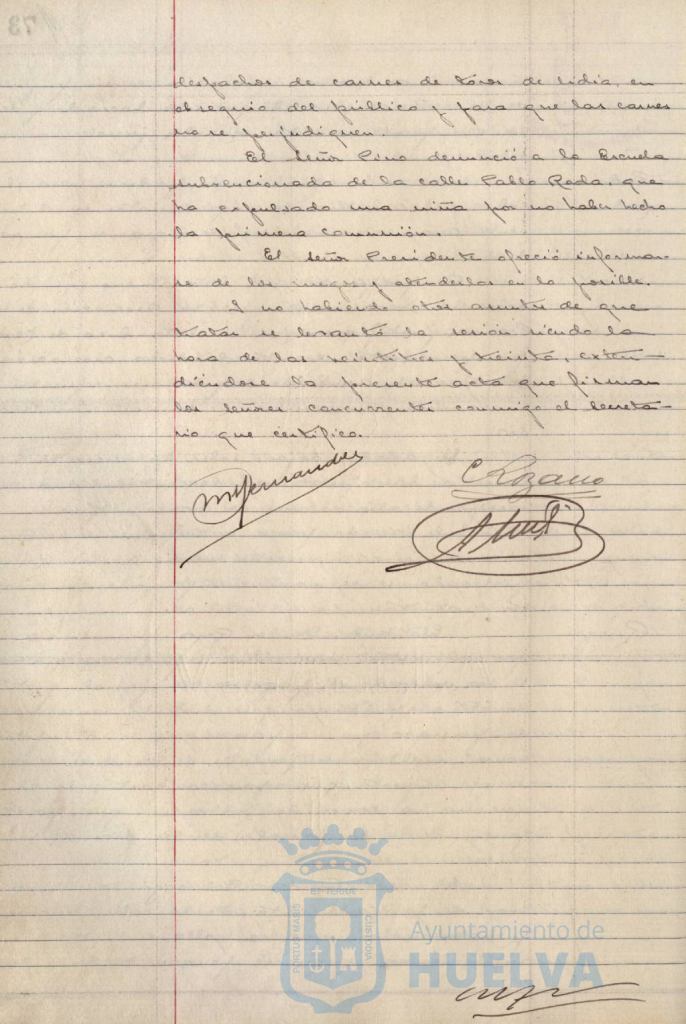 despachos de carnes de tóros de lidia, en
obsequio del público y para que las carnes
no se perjudiquen.
El Señor Pino denunció a la Escuela
subvencionada de la calle Pablo Rada, que
ha expulsado una niña por no haber hecho
la primera comunión.
El señor Presidente ofreció informar-
se de los ruegos y atenderlos en lo posible.
Y no habiendo otros asuntos de que
tratar se levantó la sesión siendo la
hora de las veintitres y treinta, exten-
diéndose la presente acta que firman
los señores concurrentes conmigo el Secreta-
rio que certifico.
M Hernandez
C Lozano
PORTUS MARIS
ET TERRE
CUSTODIA
Ayuntamiento de
HUELVA